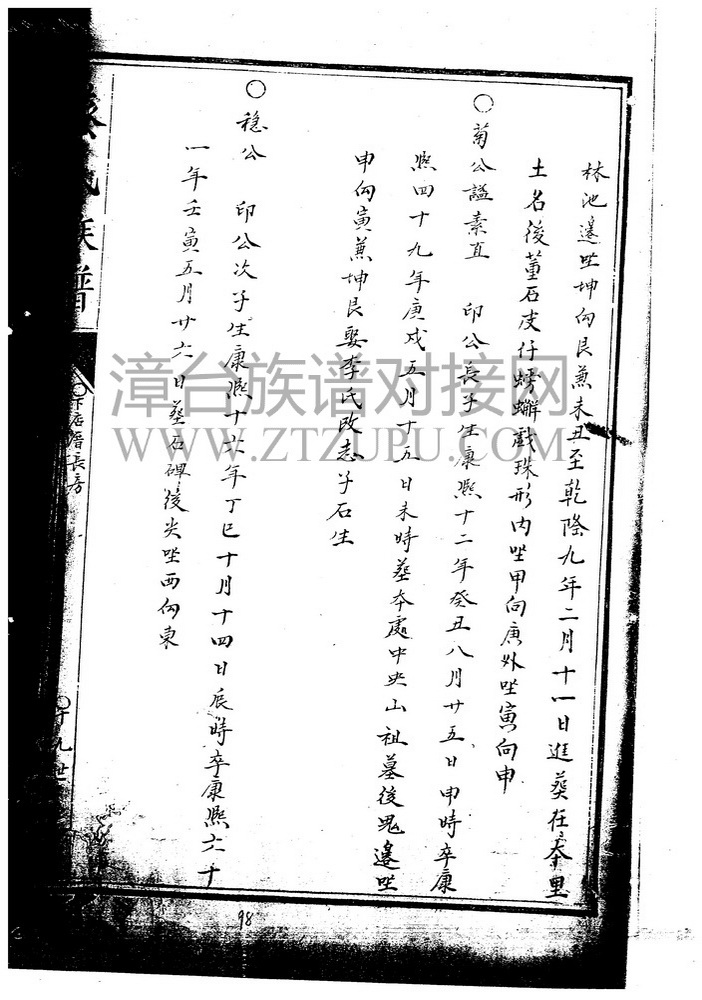 林池邊坐坤向艮兼未丑至乾隆九年二月十一日迁葬在本里
土名後董石皮仔螃蠏戲珠形内坐甲向庚外坐寅向申
○菊公謚素直 印公長子生康熙十二年癸丑八月廿五日申時卒康
熙四十九年庚戌五月十五日未時葬本處中央山祖墓後邊坐
申向寅兼坤艮娶李氏改志子石生
○穏公 印公次子生康熙十六年丁巳十月十四日辰時卒康熙六十
一年壬寅五月廿六日葬石碑後尖坐西向東
氏族譜
下店厝長房
十九世
98
漳台族谱对接网
WWW.ZTZUPU.COM